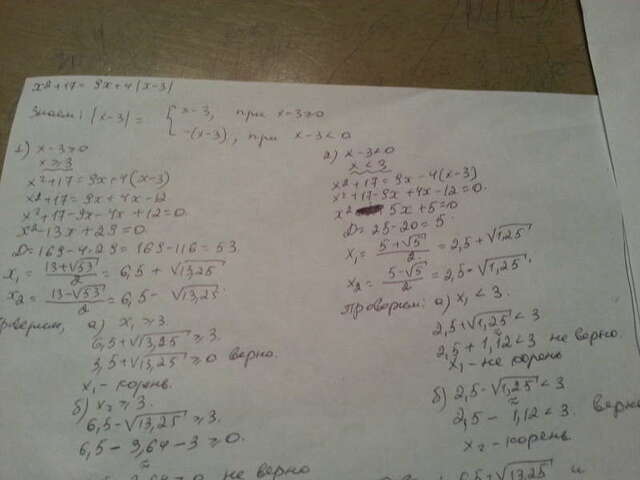 x²+17= 9x+4|x-3|
Знаем: |x-3| = { x-3, при x-3≥0
-(x-3), при x-3<0
1) x-3≥0
x≥3
x²+17=9x+4(x-3)
x²+17=9x+4x-12
x²+17-9x-4x+12=0
x²-13x+29=0.
D=169-4·29=169-116=53.
x₁ = (13+√53)/2 = 6,5 + √13,25
x₂ = (13-√53)/2 = 6,5- √13,25.
а) x₁ ≥3.
6,5+√13,25 ≥3.
3,5+√13,25 ≥0 верно.
x₁- корень.
б) x₂ ≥3.
6,5-√13,25 ≥3.
6,5-3,64-3≥0.
≈
не верно
2) x-3<0
x<3
x²+17=9x-4(x-3)
x²+17-9x+4x-12=0.
x² 5x+5=0
D=25-20=5.
x₁= (5+√5)/2 = 2,5+√1,25
x₂= (5-√5)/2 = 2,5-√1,25.
Проверяем: а) x₁<3.
2,5+√1,25<3
≈
2,5+1,12<3 не верно.
x₁-не корень
б) 2,5-√1,25<3
≈
2,5- 1,12<3. верно
x₂-корень
6,5+√13,25 и